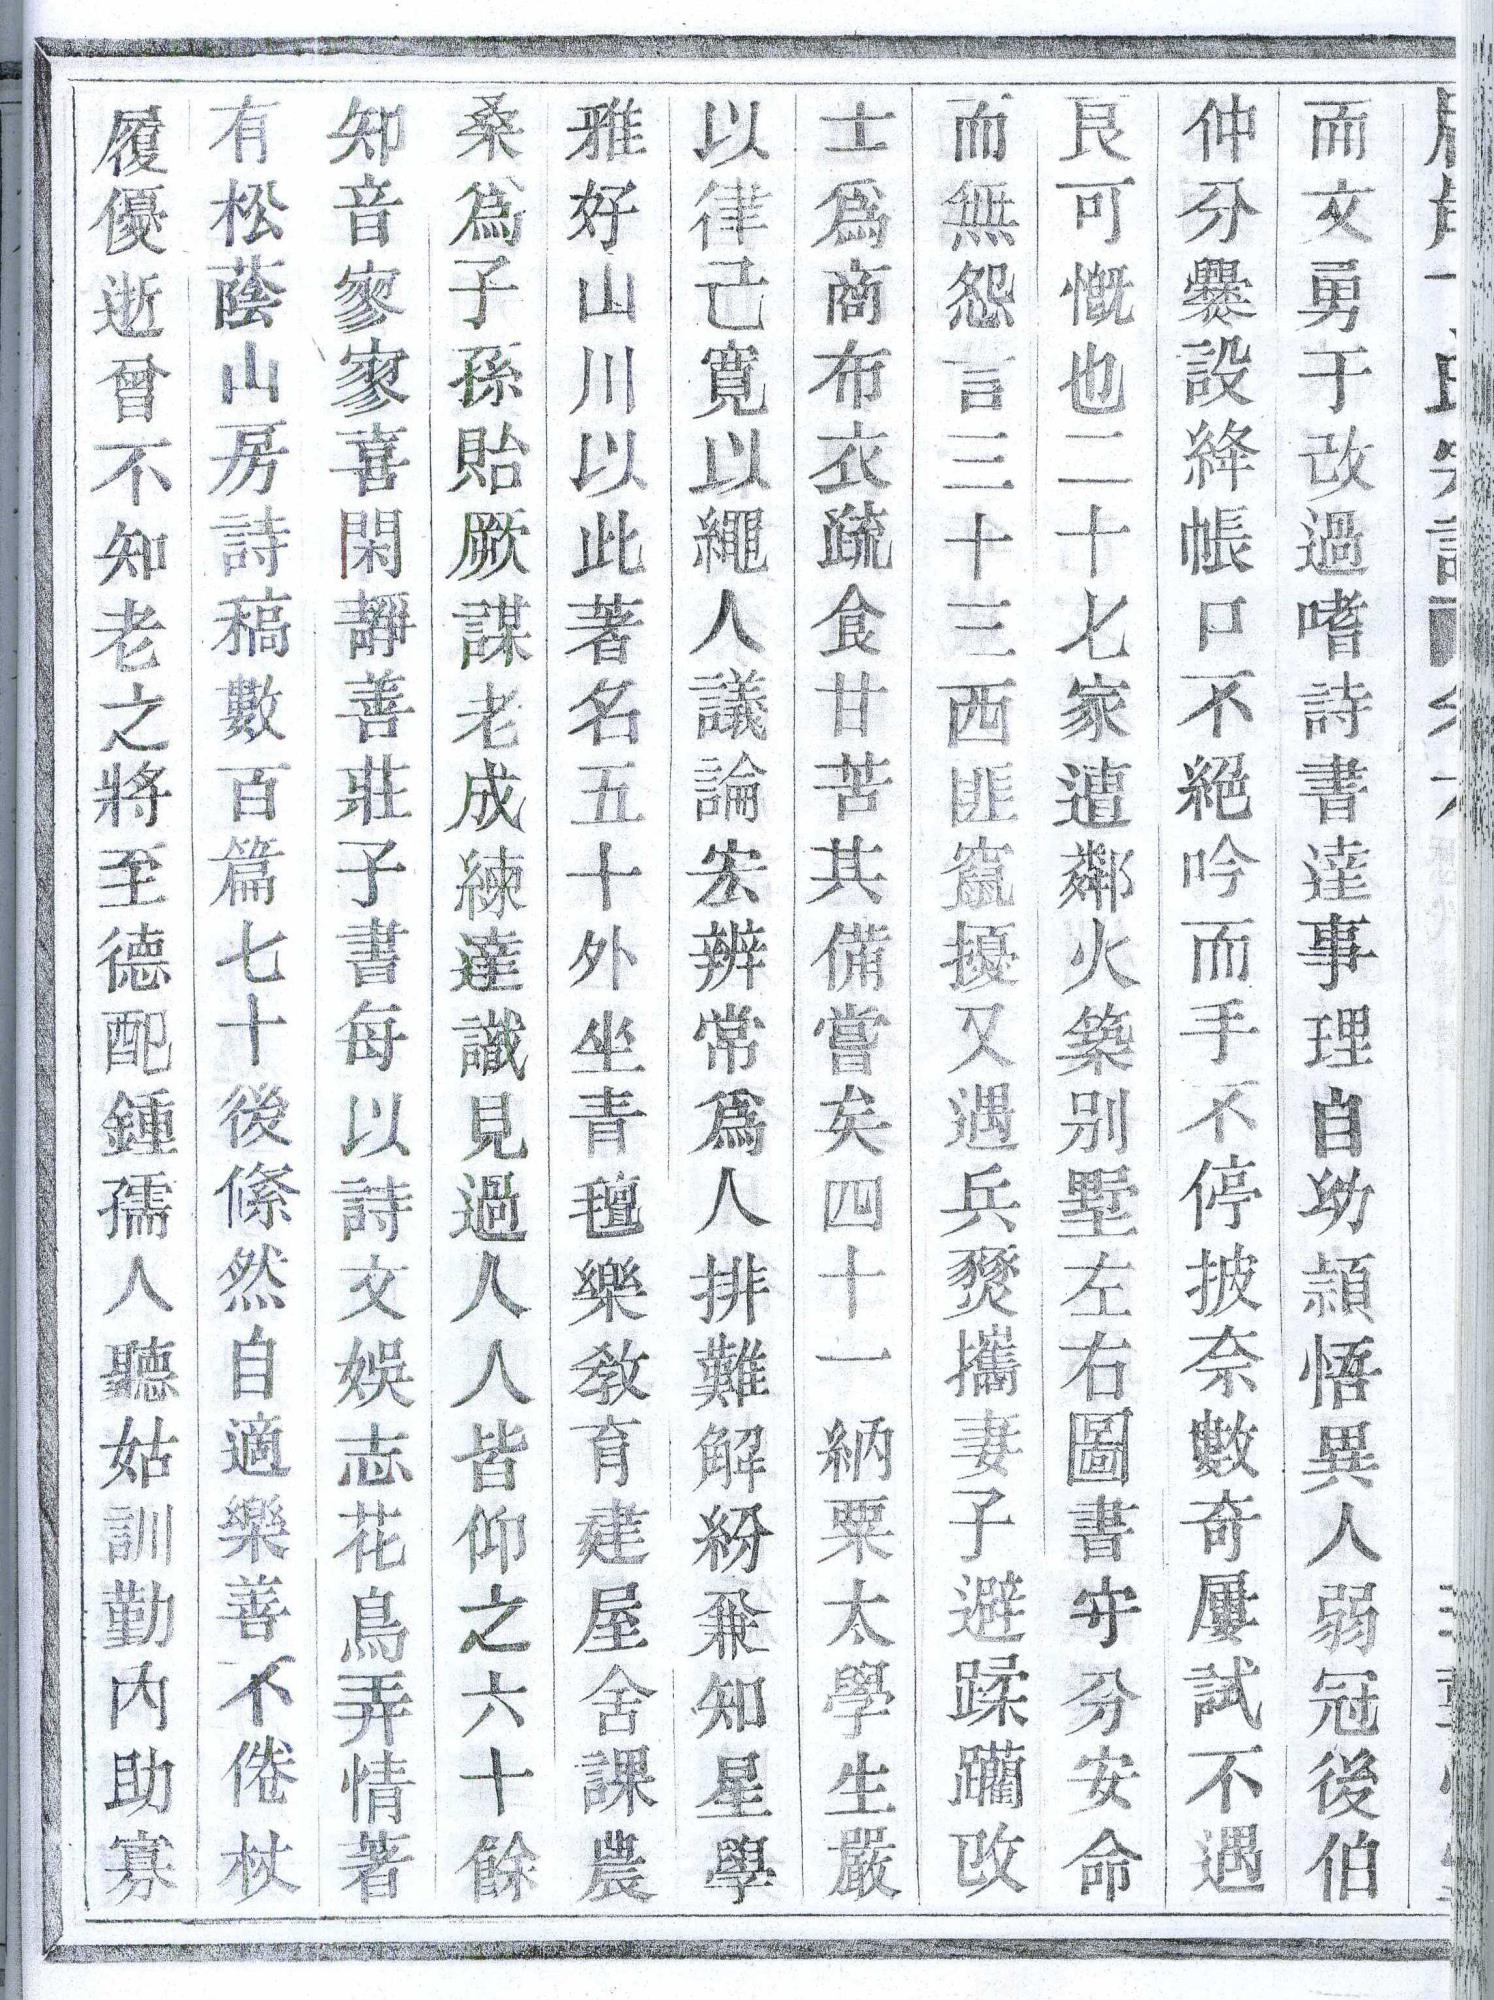 而文勇于改過嗜詩書達事理自幼頴悟異人弱冠後伯
仲分爨設絳帳口不絕吟而手不停披奈數奇屢試不遇
良可慨也二十七家遭鄰火築別墅左右圖書守分安命
而無怨言三十三西匪竄擾又遇兵燹攜妻子避蹂躪改
士爲商布衣疏食甘苦其備嘗矣四十一納粟太學生嚴
以律己寛以繩人議論宏辨常爲人排難解紛兼知星學
雅好山川以此著名五十外坐青氊樂教育建屋舍課農
桑爲子孫貽厥謀老成練達識見過人人皆仰之六十餘
知音寥寥喜閑靜善莊子書每以詩文娛志花鳥弄情著
有松蔭山房詩稿數百篇七十後翛然自適樂善不倦杖
履優逝曾不知老之將至德配鍾孺人聽姑訓勤內助寡